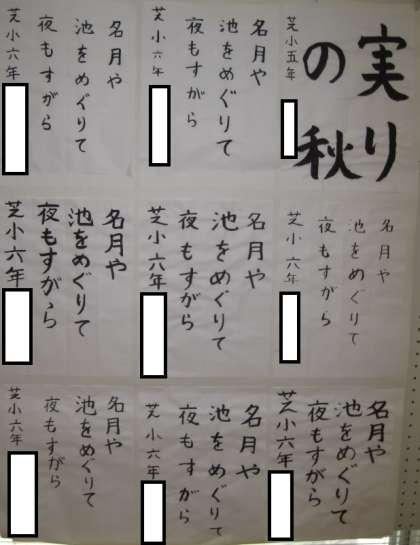 実り
の秋
芝小五年
名月や
池をめぐりて
夜もすがら
芝小六年
名月や
池をめぐりて
夜もすがら
芝小六年
名月や
池をめぐりて
夜もすがら
芝小六年
名月や
池をめぐりて
夜もすがら
芝小六年
名月や
池をめぐりて
夜もすがら
芝小六年
名月や
池をめぐりて
夜もすがら
芝小六年
名月や
池をめぐりて
夜もすがら
芝小六年
名月や
池をめぐりて
夜もすがら
芝小六年